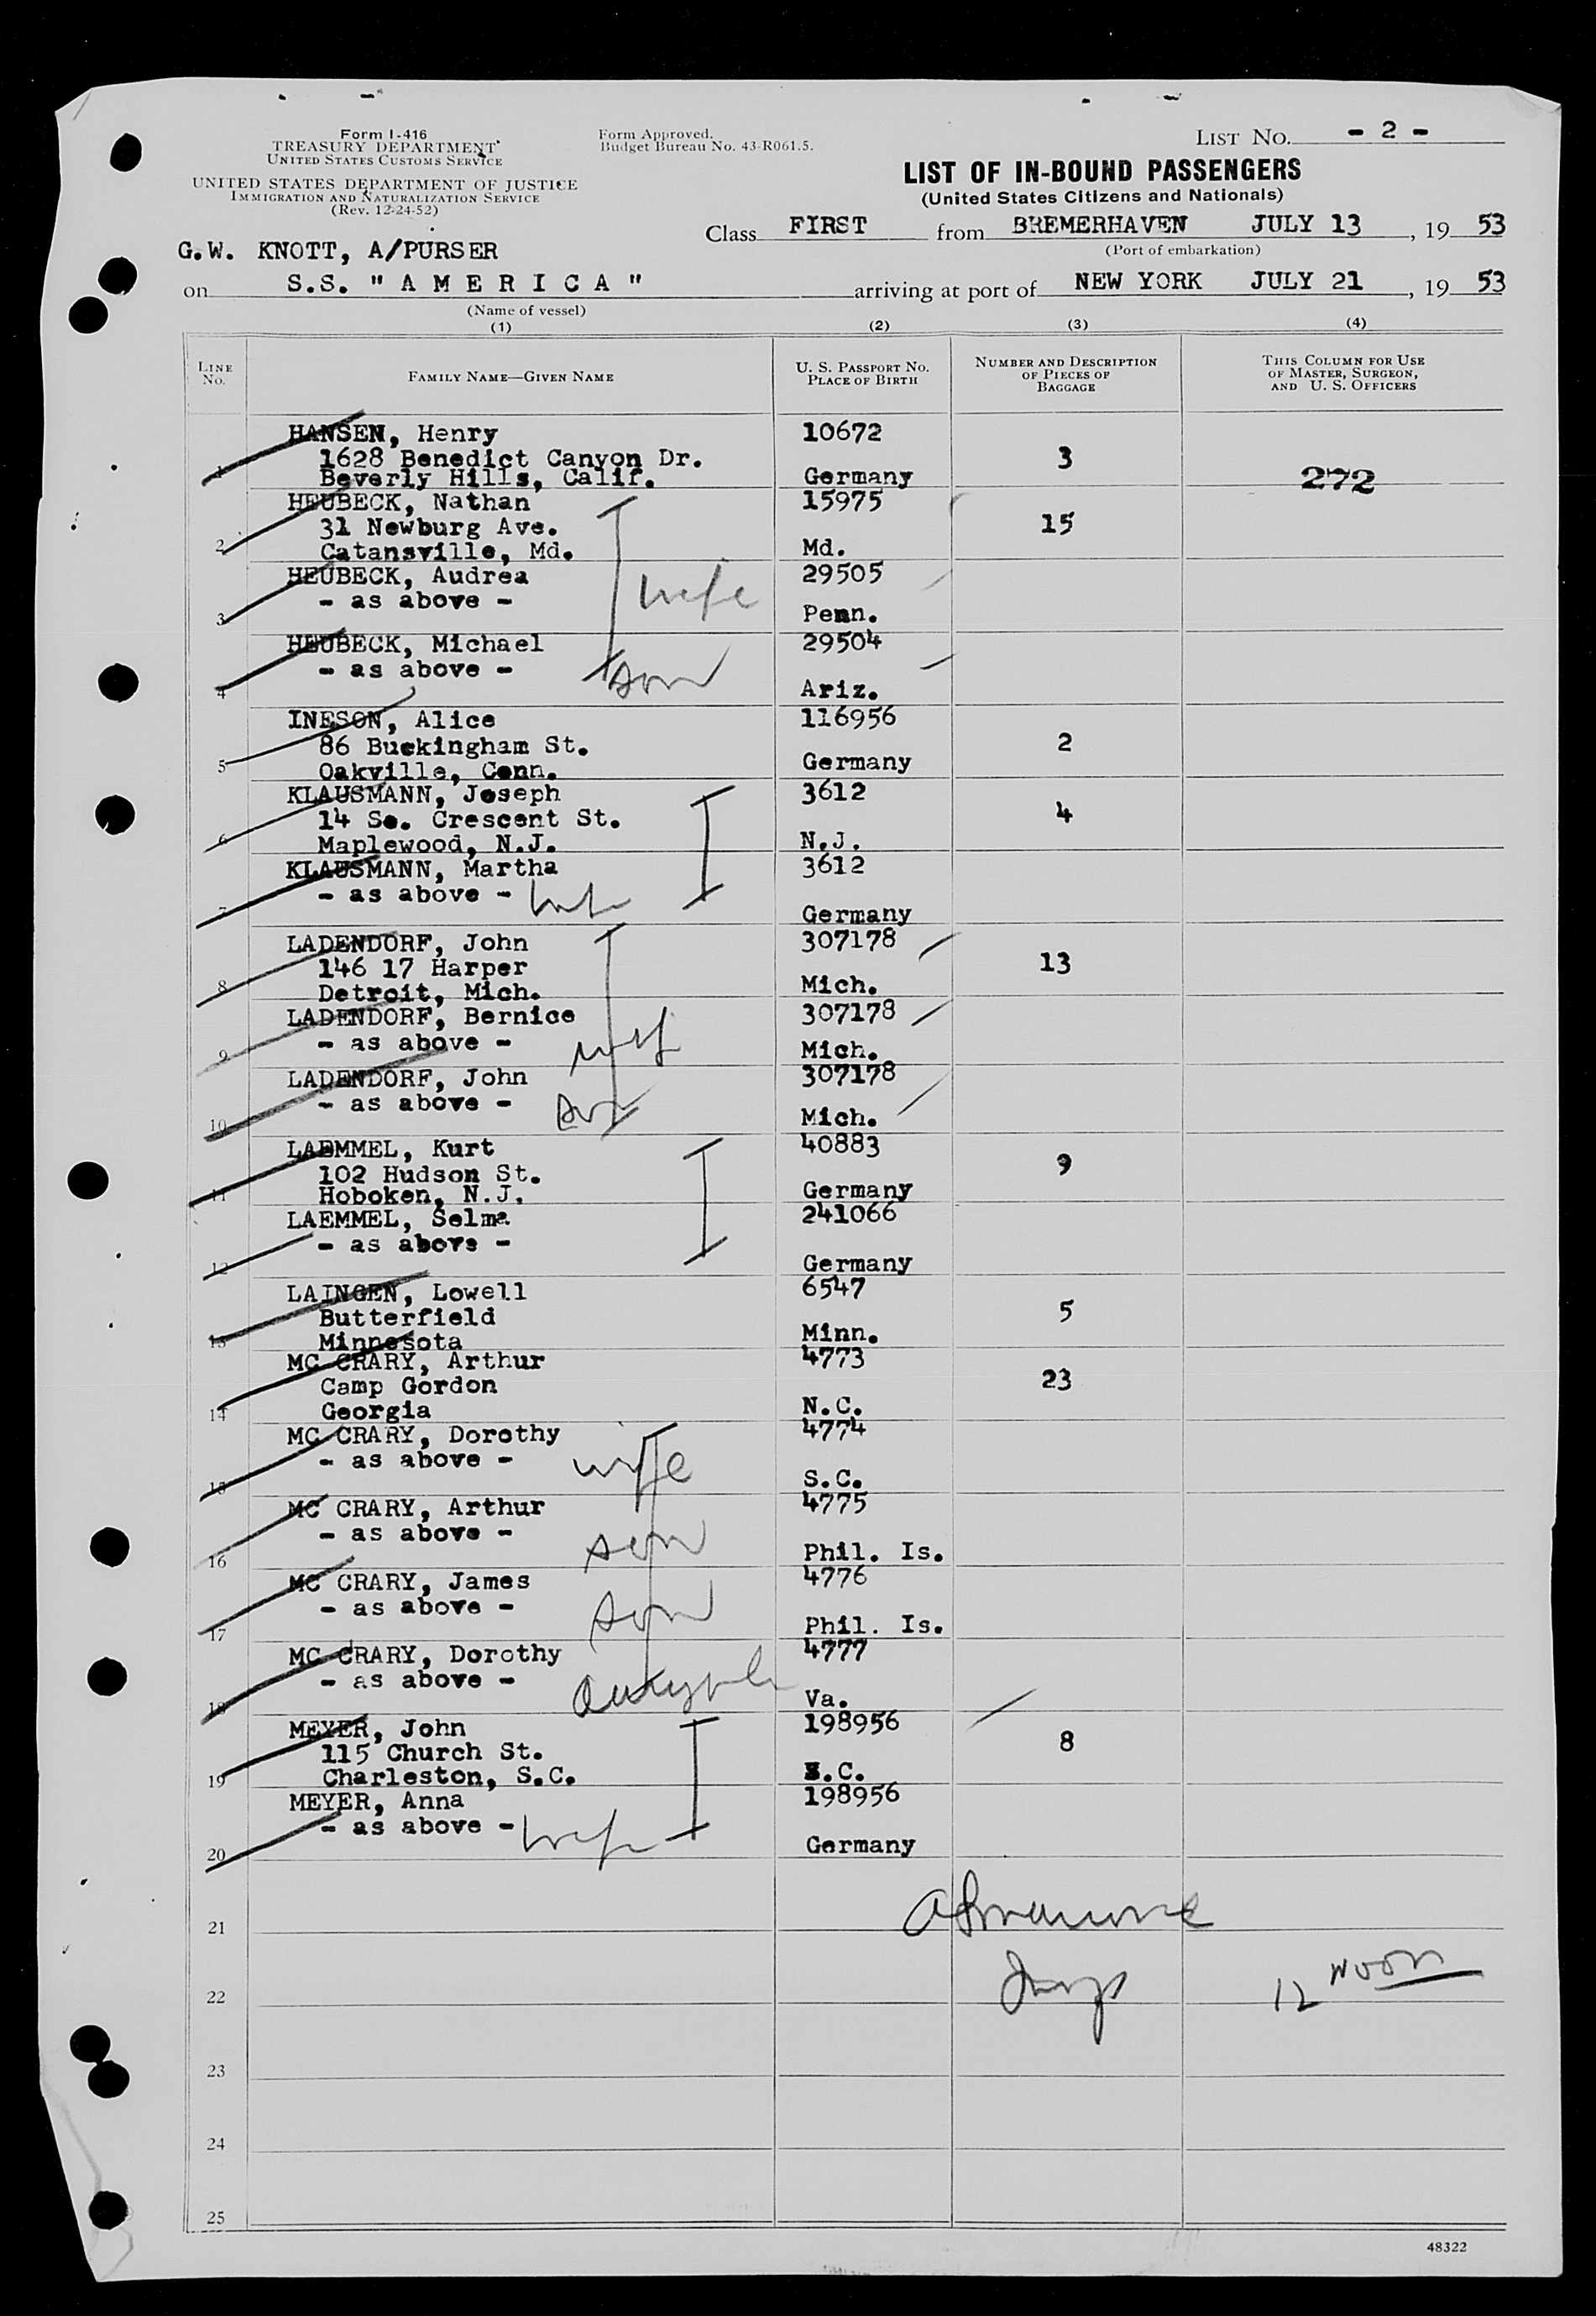 Form I-416
TREASURY DEPARTMENT
UNITED STATES CUSTOMS SERVICE
UNITED STATES DEPARTMENT OF JUSTICE
IMMIGRATION AND NATURALIZATION SERVICE
(Rev. 12-24-52)
Form Approved.
Budget Bureau No. 43-R061.5.
LIST No. - 2 -
LIST OF IN-BOUND PASSENGERS
(United States Citizens and Nationals)
Class FIRST from BREMERHAVEN JULY 13, 19 53
(Port of embarkation)
G.W. KNOTT, A/PURSER
on S.S. "A M E R I C A" arriving at port of NEW YORK JULY 21, 19 53
(Name of vessel)
(1) (2) (3) (4)
LINE No.
FAMILY NAME—GIVEN NAME
U. S. PASSPORT NO.
PLACE OF BIRTH
NUMBER AND DESCRIPTION
OF PIECES OF
BAGGAGE
THIS COLUMN FOR USE
OF MASTER, SURGEON,
AND U. S. OFFICERS
HANSEN, Henry 10672
1 1628 Benedict Canyon Dr. 3
Beverly Hills, Calif. Germany 272
HEUBECK, Nathan 15975
31 Newburg Ave. 15
2 Catansville, Md. Md.
HEUBECK, Audrea 29505
- as above - wife
3 Penn.
HEUBECK, Michael 29504
- as above - son
4 Ariz.
INESON, Alice 116956
86 Buckingham St. 2
5 Oakville, Conn. Germany
KLAUSMANN, Joseph 3612
14 So. Crescent St. 4
6 Maplewood, N.J. N.J.
KLAUSMANN, Martha 3612
- as above - wife
7 Germany
LADENDORF, John 307178
146 17 Harper 13
8 Detroit, Mich. Mich.
LADENDORF, Bernice 307178
9 - as above - wife Mich.
LADENDORF, John 307178
- as above - son
10 Mich.
LAEMMEL, Kurt 40883
102 Hudson St. 9
11 Hoboken, N.J. Germany
LAEMMEL, Selma 241066
- as above -
12 Germany
LAINGEN, Lowell 6547
Butterfield 5
13 Minnesota Minn.
MC CRARY, Arthur 4773
Camp Gordon 23
14 Georgia N.C.
MC CRARY, Dorothy 4774
- as above - wife
15 S.C.
MC CRARY, Arthur 4775
- as above - son
16 Phil. Is.
MC CRARY, James 4776
- as above - son
17 Phil. Is.
MC CRARY, Dorothy 4777
- as above -
18 Va.
MEYER, John 198956
115 Church St. 8
19 Charleston, S.C. S.C.
MEYER, Anna 198956
- as above - wife
20 Germany
21
22 12 NOON
23
24
25
48322